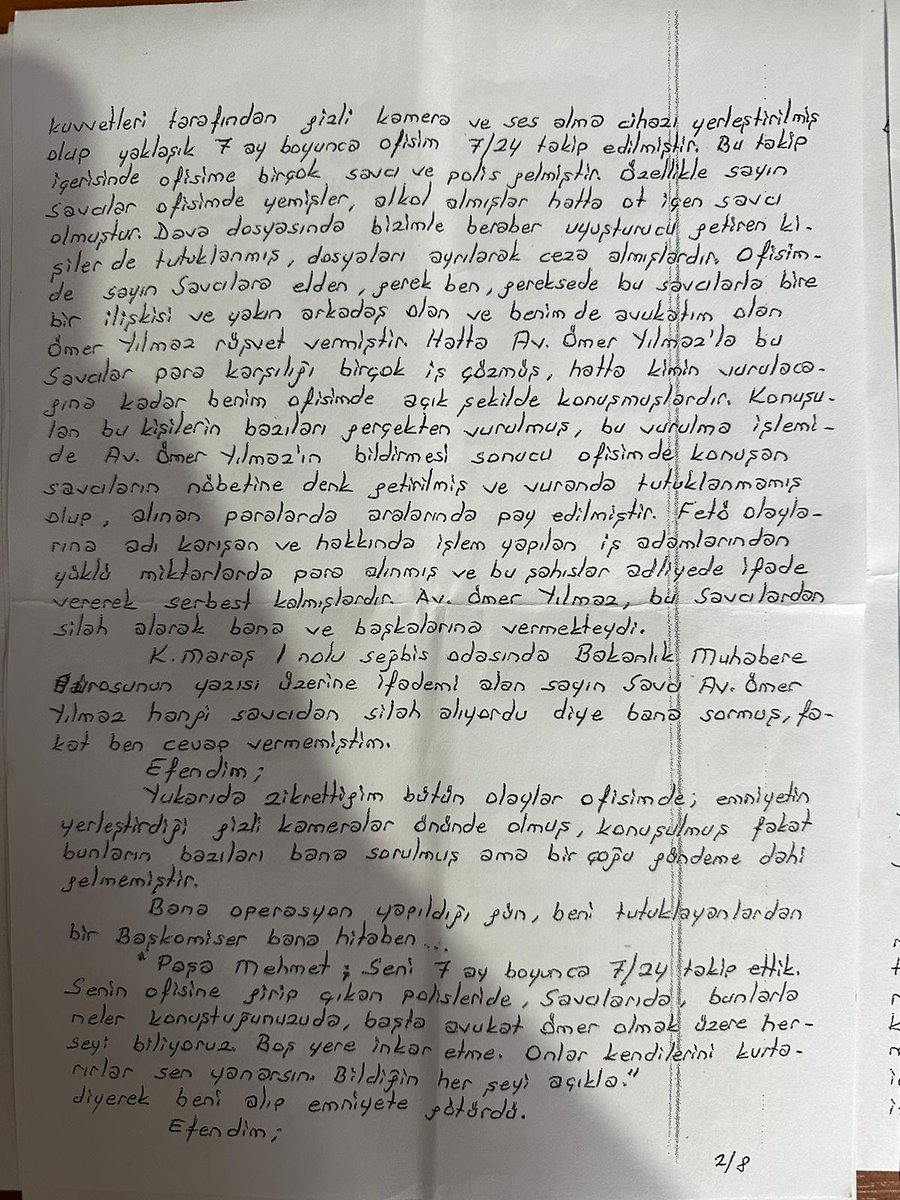 kuvvetleri tarafından gizli kamera ve ses alma cihazı yerleştirilmiş
olup yaklaşık 7 ay boyunca ofisim 7/24 takip edilmiştir. Bu takip
içerisinde ofisime birçok savcı ve polis gelmiştir. Özellikle sayın
Savcılar ofisimde yemişler, alkol almışlar hatta ot içen savcı
olmuştur. Dava dosyasında bizimle beraber uyuşturucu getiren ki-
şiler de tutuklanmış, dosyaları ayrılarak ceza almışlardır. Ofisim-
de sayın Savcılara elden, gerek ben, gereksede bu savcılarla bire
bir ilişkisi ve yakın arkadaş olan ve benim de avukatım olan
Ömer Yılmaz rüşvet vermiştir. Hatta Av. Ömer Yılmaz'la bu
Savcılar para karşılığı birçok iş çözmüş, hatta kimin vurulaca-
ğına kadar benim ofisimde açık şekilde konuşmuşlardır. Konuşu-
lan bu kişilerin bazıları gerçekten vurulmuş, bu vurulma işlemi-
de Av. Ömer Yılmaz'ın bildirmesi sonucu ofisimde konuşan
savcıların nöbetine denk getirilmiş ve vuranda tutuklanmamış
olup, alınan paralarda aralarında pay edilmiştir. Fetö olayla-
rına adı karışan ve hakkında işlem yapılan iş adamlarından
yüklü miktarlarda para alınmış ve bu şahıslar adliyede ifade
vererek serbest kalmışlardır. Av. Ömer Yılmaz, bu Savcılardan
silah alarak bana ve başkalarına vermekteydi.
K.maraş 1 nolu segbis odasında Bakanlık Muhabere
Bürosunun yazısı üzerine ifademi alan sayın Savcı Av. Ömer
Yılmaz hangi savcıdan silah alıyordu diye bana sormuş, fa-
kat ben cevap vermemiştim.
Efendim;
Yukarıda zikrettiğim bütün olaylar ofisimde; emniyetin
yerleştirdiği gizli kameralar önünde olmuş, konuşulmuş fakat
bunların bazıları bana sorulmuş ama bir çoğu gündeme dahi
gelmemiştir.
Bana operasyon yapıldığı gün, beni tutuklayanlardan
bir Başkomiser bana hitaben...
"Paşa Mehmet; Seni 7 ay boyunca 7/24 takip ettik.
Senin ofisine girip çıkan polisleride, Savcılarıda, bunlarla
neler konuştuğunuzuda, başta avukat Ömer olmak üzere her-
şeyi biliyoruz. Boş yere inkar etme. Onlar kendilerini kurta-
rırlar sen yanarsın. Bildiğin her şeyi açıkla."
diyerek beni alıp emniyete götürdü.
Efendim;
2/8